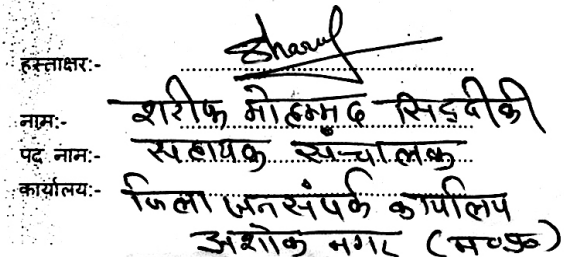 हस्ताक्षर:- Sharif
नाम:- शरीफ मोहम्मद सिद्दीकी
पद नाम:- सहायक संचालक
कार्यालय:- जिला जनसंपर्क कार्यालय
अशोक नगर (म०प्र०)